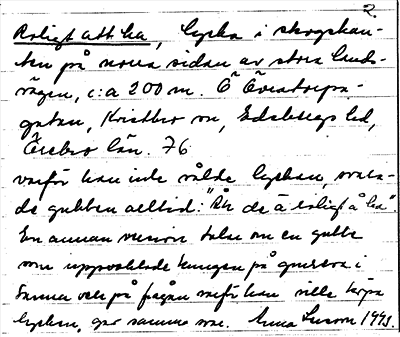 2.
Roligt att ha, lycka i skogskan-
ten på norra sidan av stora lands-
vägen, c:a 200 m. Ö Övratorpa-
gatan, Kristbro sn, Edsbergs hd,
Örebro län. 76
varför han inte sålde lyckan, svara-
de gubben alltid: "Åh de ä roligt å ha".
En annan version talar om en gubbe
som uppvaktade kungen på
Sanna och på frågan varför han ville köpa
lyckan, gav samma svar. Anna 1993.